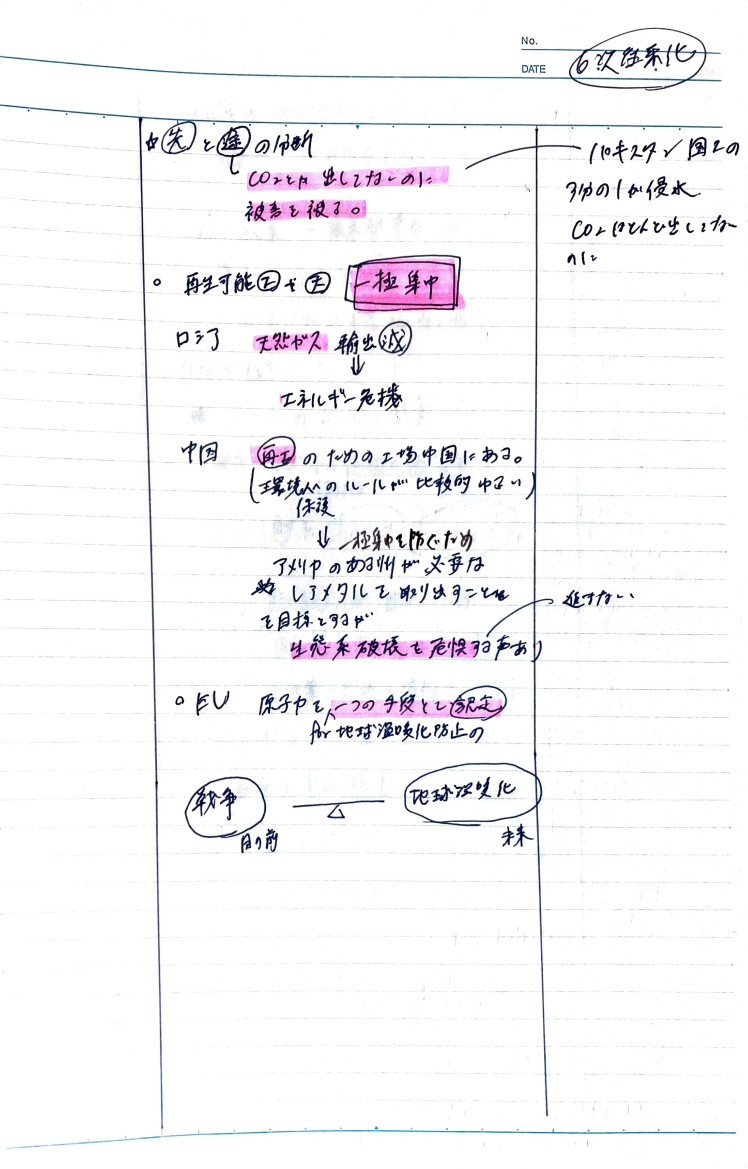 No.
DATE
6次産業化
先と途の分断
CO₂とか出してないのに
被害を被る。
パキスタン 国土の
3分の1が侵水
CO₂ほとんど出してない
のに
再生可能エ も 天 一極集中
ロシア 天然ガス 輸出 減
↓
エネルギー危機
中国 再エのための工場中国にある。
(環境へのルールが比較的ゆるい)
保護
↓ 一極集中を防ぐため
アメリカのある州が必要な
レアメタルを取り出すこと
を目標とするが
進まない
生態系破壊を危惧する声あり
EU 原子力を一つの手段として認定
for 地球温暖化防止の
戦争 地球温暖化
目の前 未来